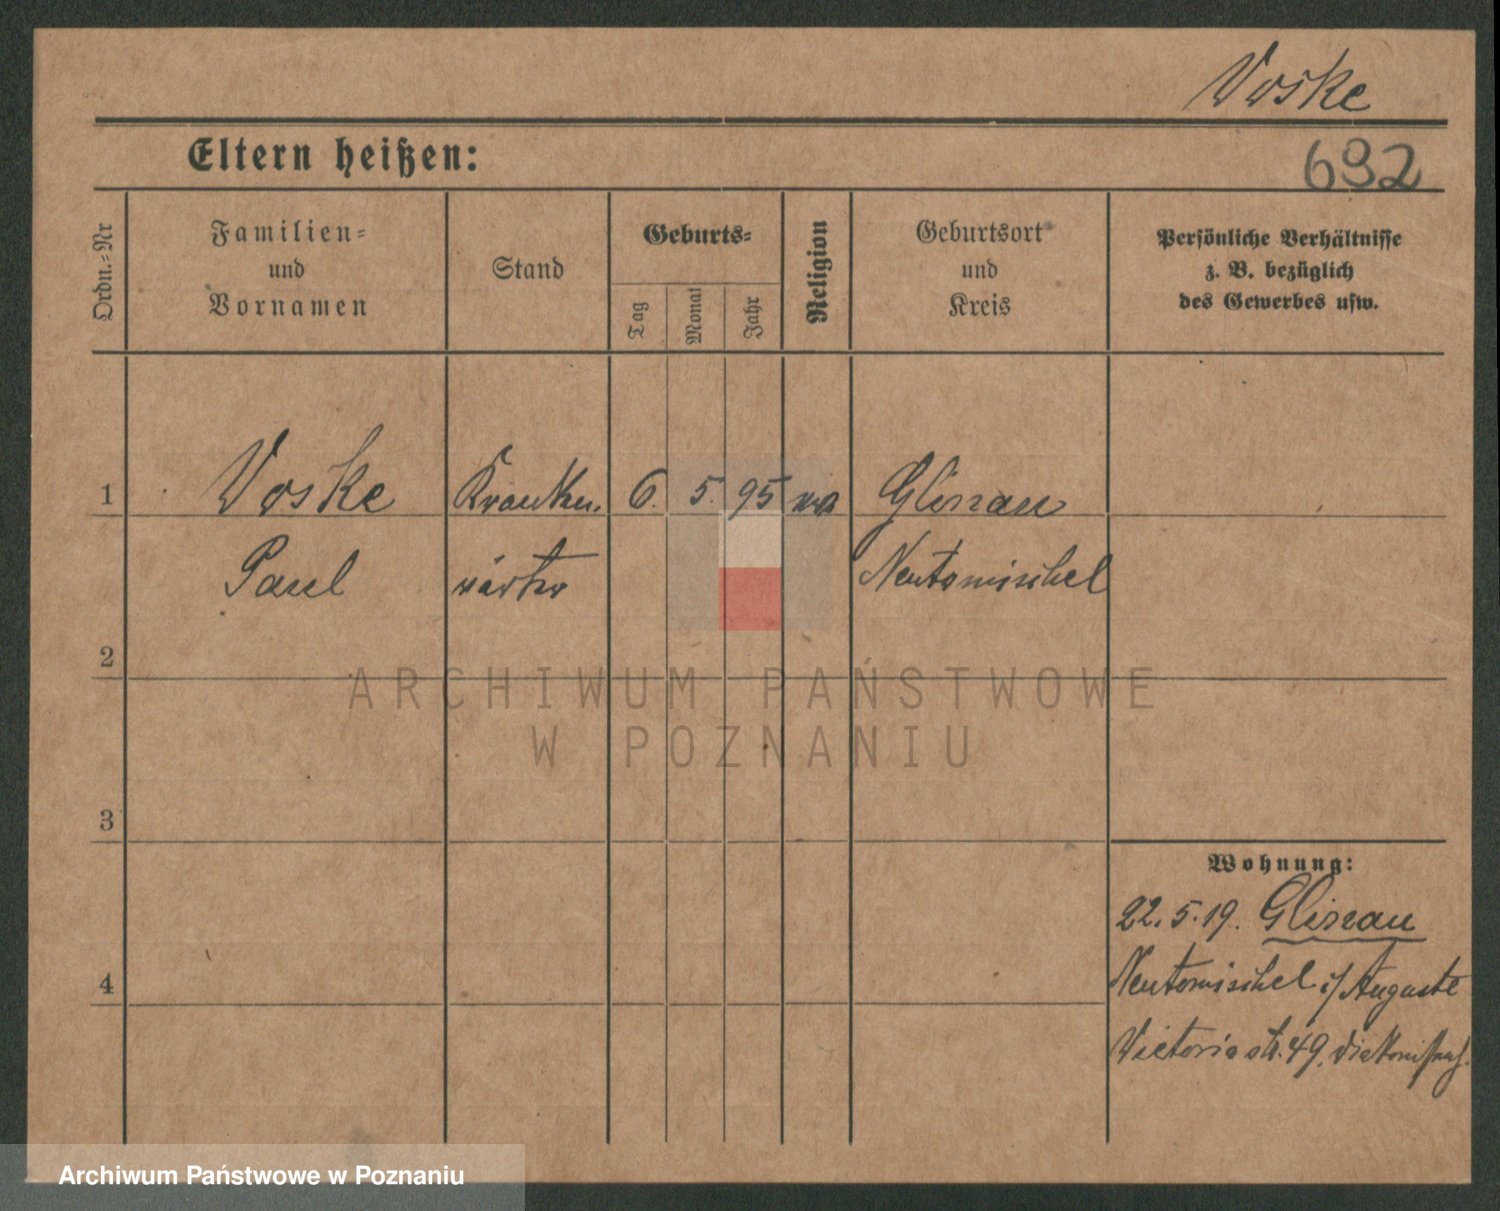 Voske
Eltern heißen:
692
Ordn.-Nr
Familien-
und
Vornamen
Stand
Geburts-
Tag
Monat
Jahr
Religion
Geburtsort
und
Kreis
Persönliche Verhältnisse
z. B. bezüglich
des Gewerbes usw.
1
Voske
Kranken.
6. 5. 95
Glinau
Paul
wärter
Neutomischel
2
ARCHIWUM PAŃSTWOWE
W POZNANIU
3
Wohnung:
22. 5. 19. Glinau
4
Neutomischel i/ Auguste
Victoria str. 49.
Archiwum Państwowe w Poznaniu